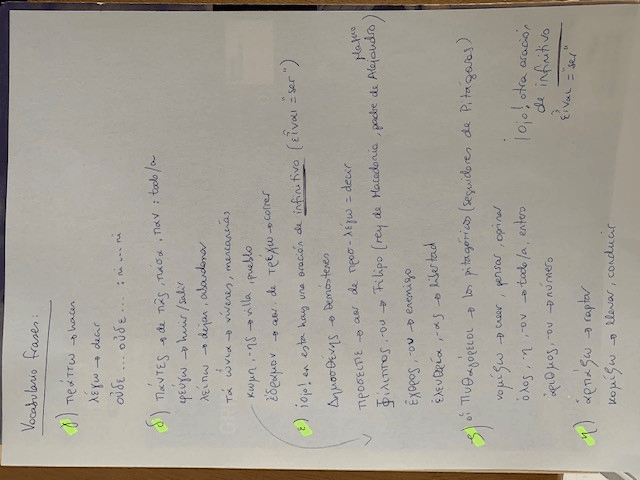 Vocabulario frases:
γ) πράττω → hacer
λέγω → decir
οὔδε ... οὔδε ... : ni ... ni
δ) πάντες → de πᾶς, πᾶσα, πᾶν : todo/a
φεύγω → huir/salir
λείπω → dejar, abandonar
τά ὤνια → víveres, mercancías
κωμη, -ης → villa, pueblo
ἔδραμον → aor de τρέχω → correr
ε) ¡Ojo! en esta hay una oración de infinitivo (εἶναι = "ser")
Δημοσθένης → Demóstenes
προσεῖπε → aor de προσ-λέγω = decir
Φίλιππος, -ου → Filipo (rey de Macedonia, padre de Alejandro Magno)
ἔχθρος, -ου → enemigo
ἐλευθερία, -ας → libertad
ς) οἱ Πυθαγόρειοι → los pitagóricos (seguidores de Pitágoras)
νομίζω → creer, pensar, opinar
ὅλος, η, -ον → todo/a, entero
ἀριθμος, -ου → número
¡Ojo! otra oración
de infinitivo
εἶναι = "ser"
η) ἁρπάζω → raptar
κομίζω → llevar, conducir